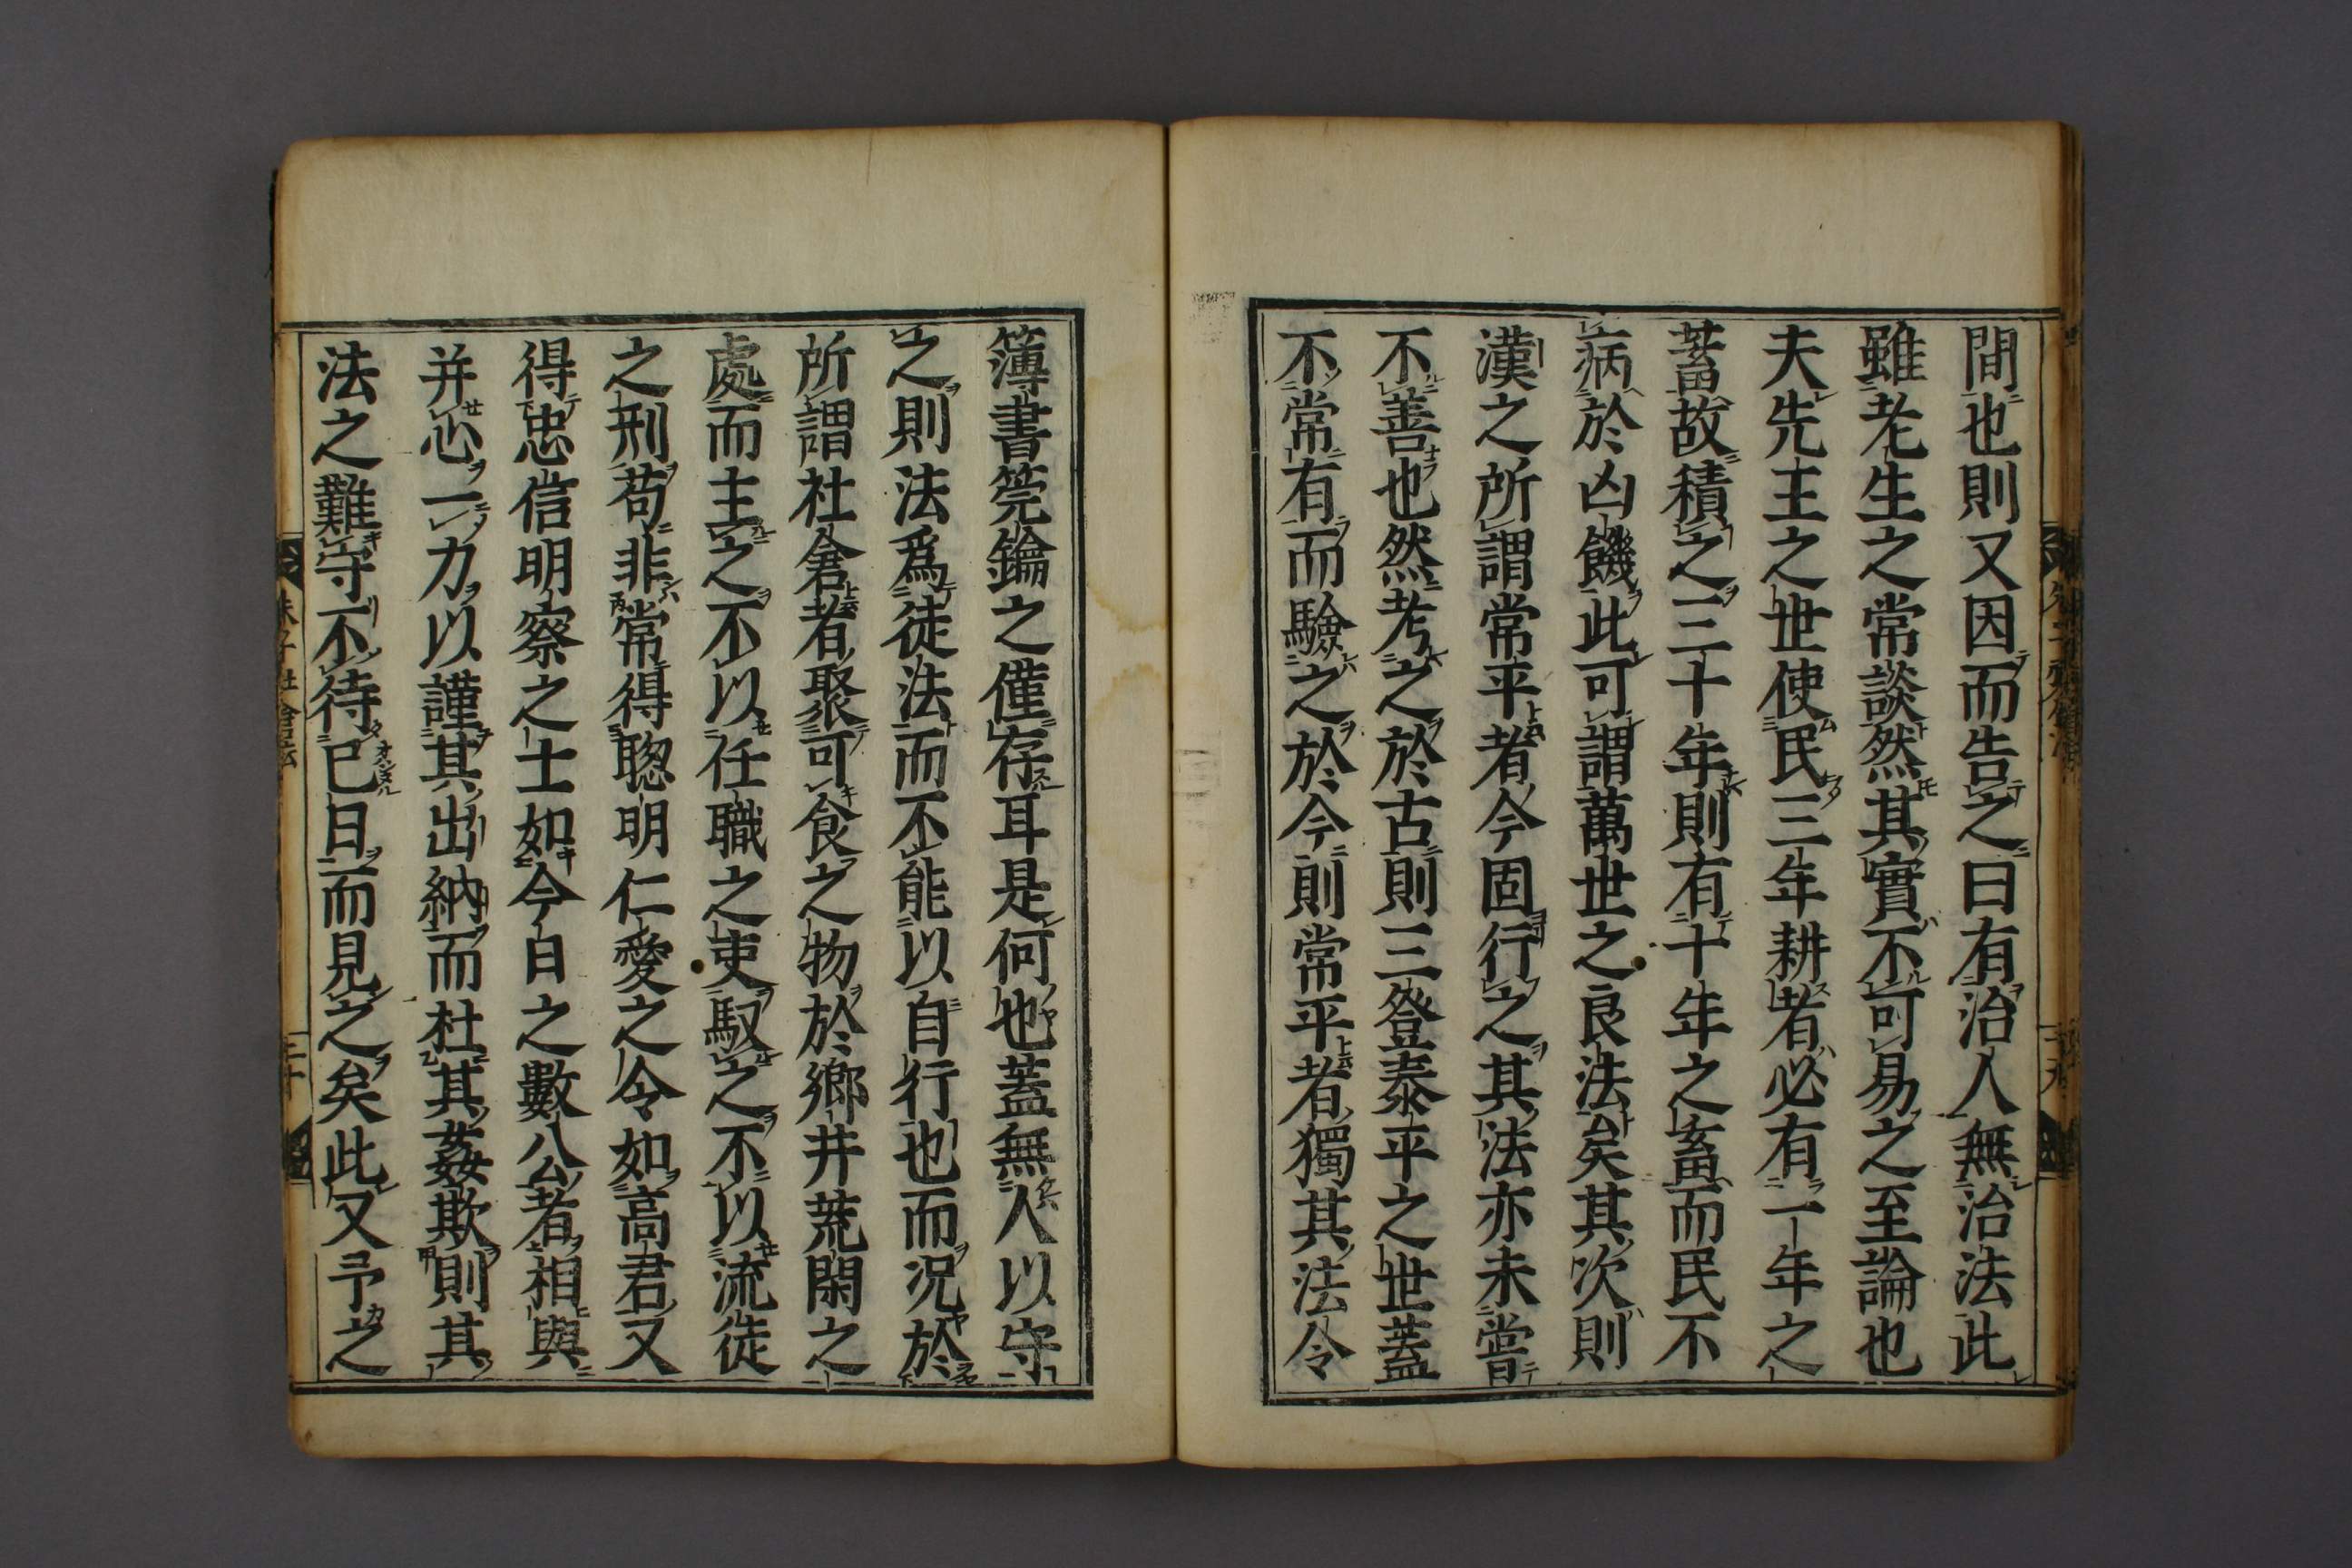 間也則又因而告之曰有治人無治法此
雖老生之常談然其實不可易之至論也
夫先王之世使民三年耕者必有一年之
蓄故積之三十年則有十年之畜而民不
病於凶饑此可謂萬世之良法矣其次則
漢之所謂常平者今固行之其法亦未嘗
不善也然考之於古則三登泰平之世蓋
不常有而驗之於今則常平者獨其法令
簿書筦鑰之僅存耳是何也蓋無人以守
之則法爲徒法而不能以自行也而況於
所謂社倉者聚可食之物於鄉井荒閑之
處而主之不以任職之吏馭之不以流徒
之刑苟非常得聦明仁愛之令如高君又
得忠信明察之士如今日之數公者相與
并心一力以謹其出納而杜其姦欺則其
法之難守不待已日而見之矣此又予之
朱子社倉法
二十